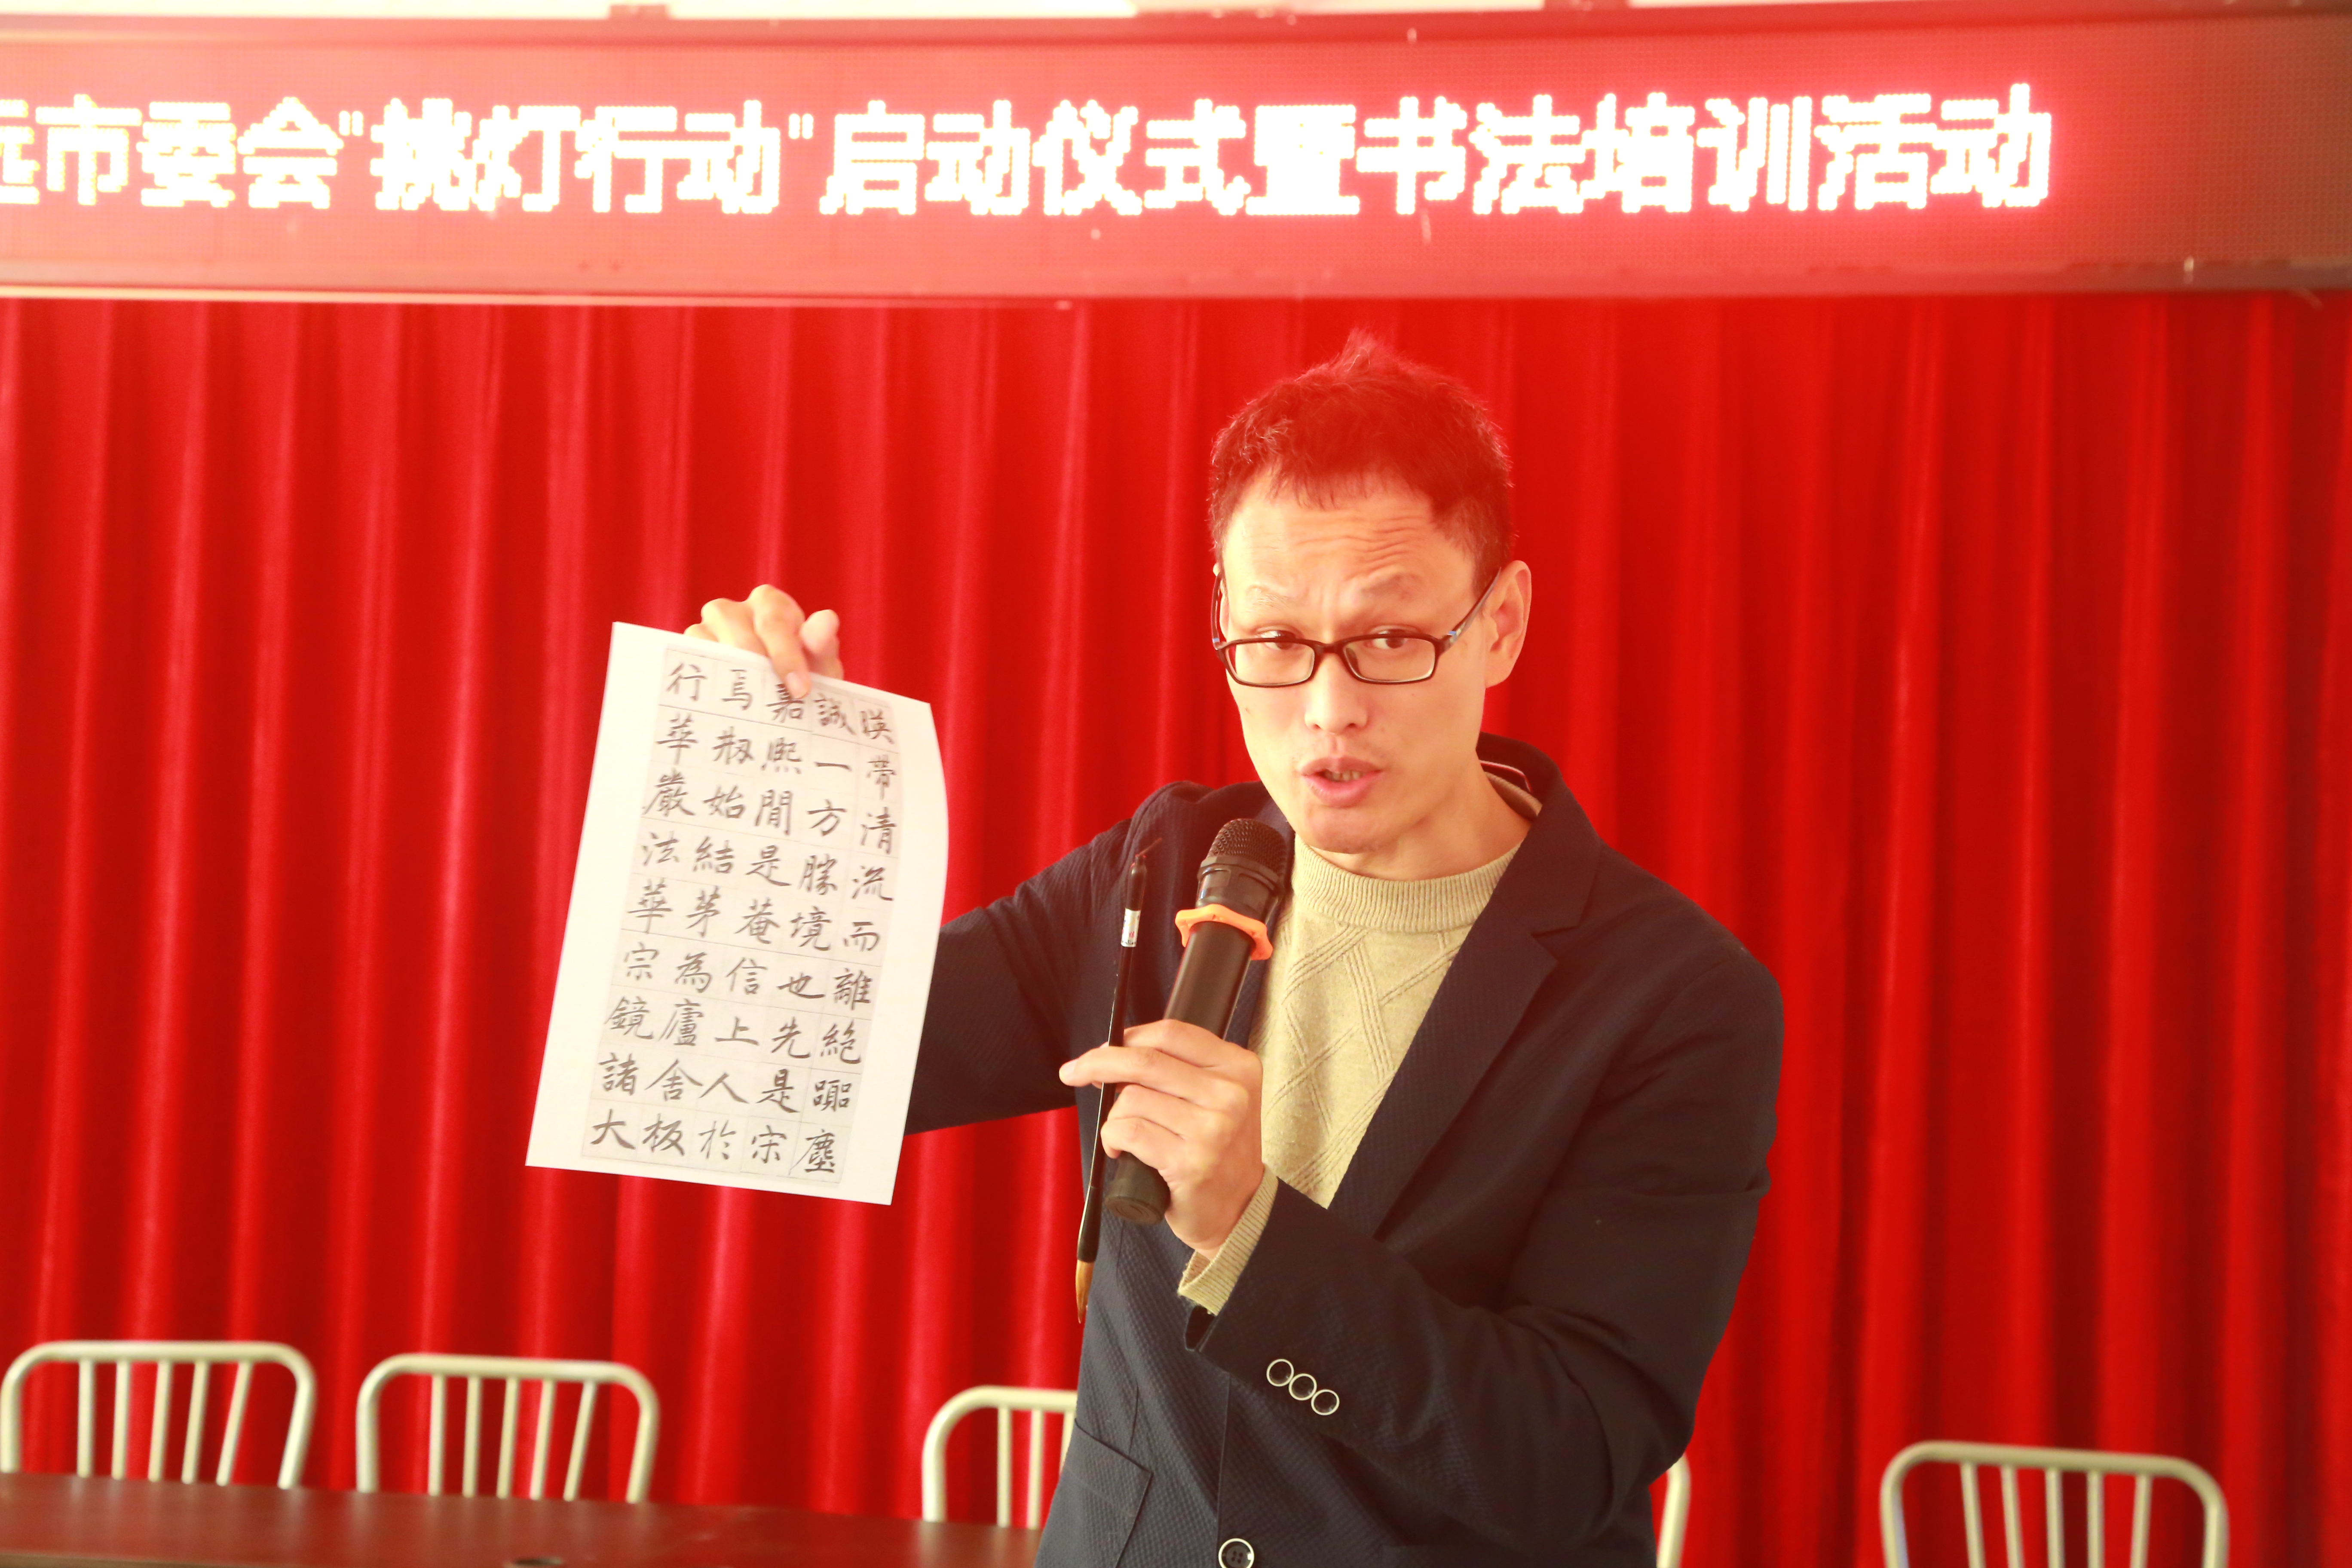 远市委会"挑灯行动"启动仪式暨书法培训活动
暎帶清流而離絕囂塵
誠一方勝境也先是宋
嘉熙間是菴信上人於
焉剏始結茅為廬舍板
行華嚴法華宗鏡諸大